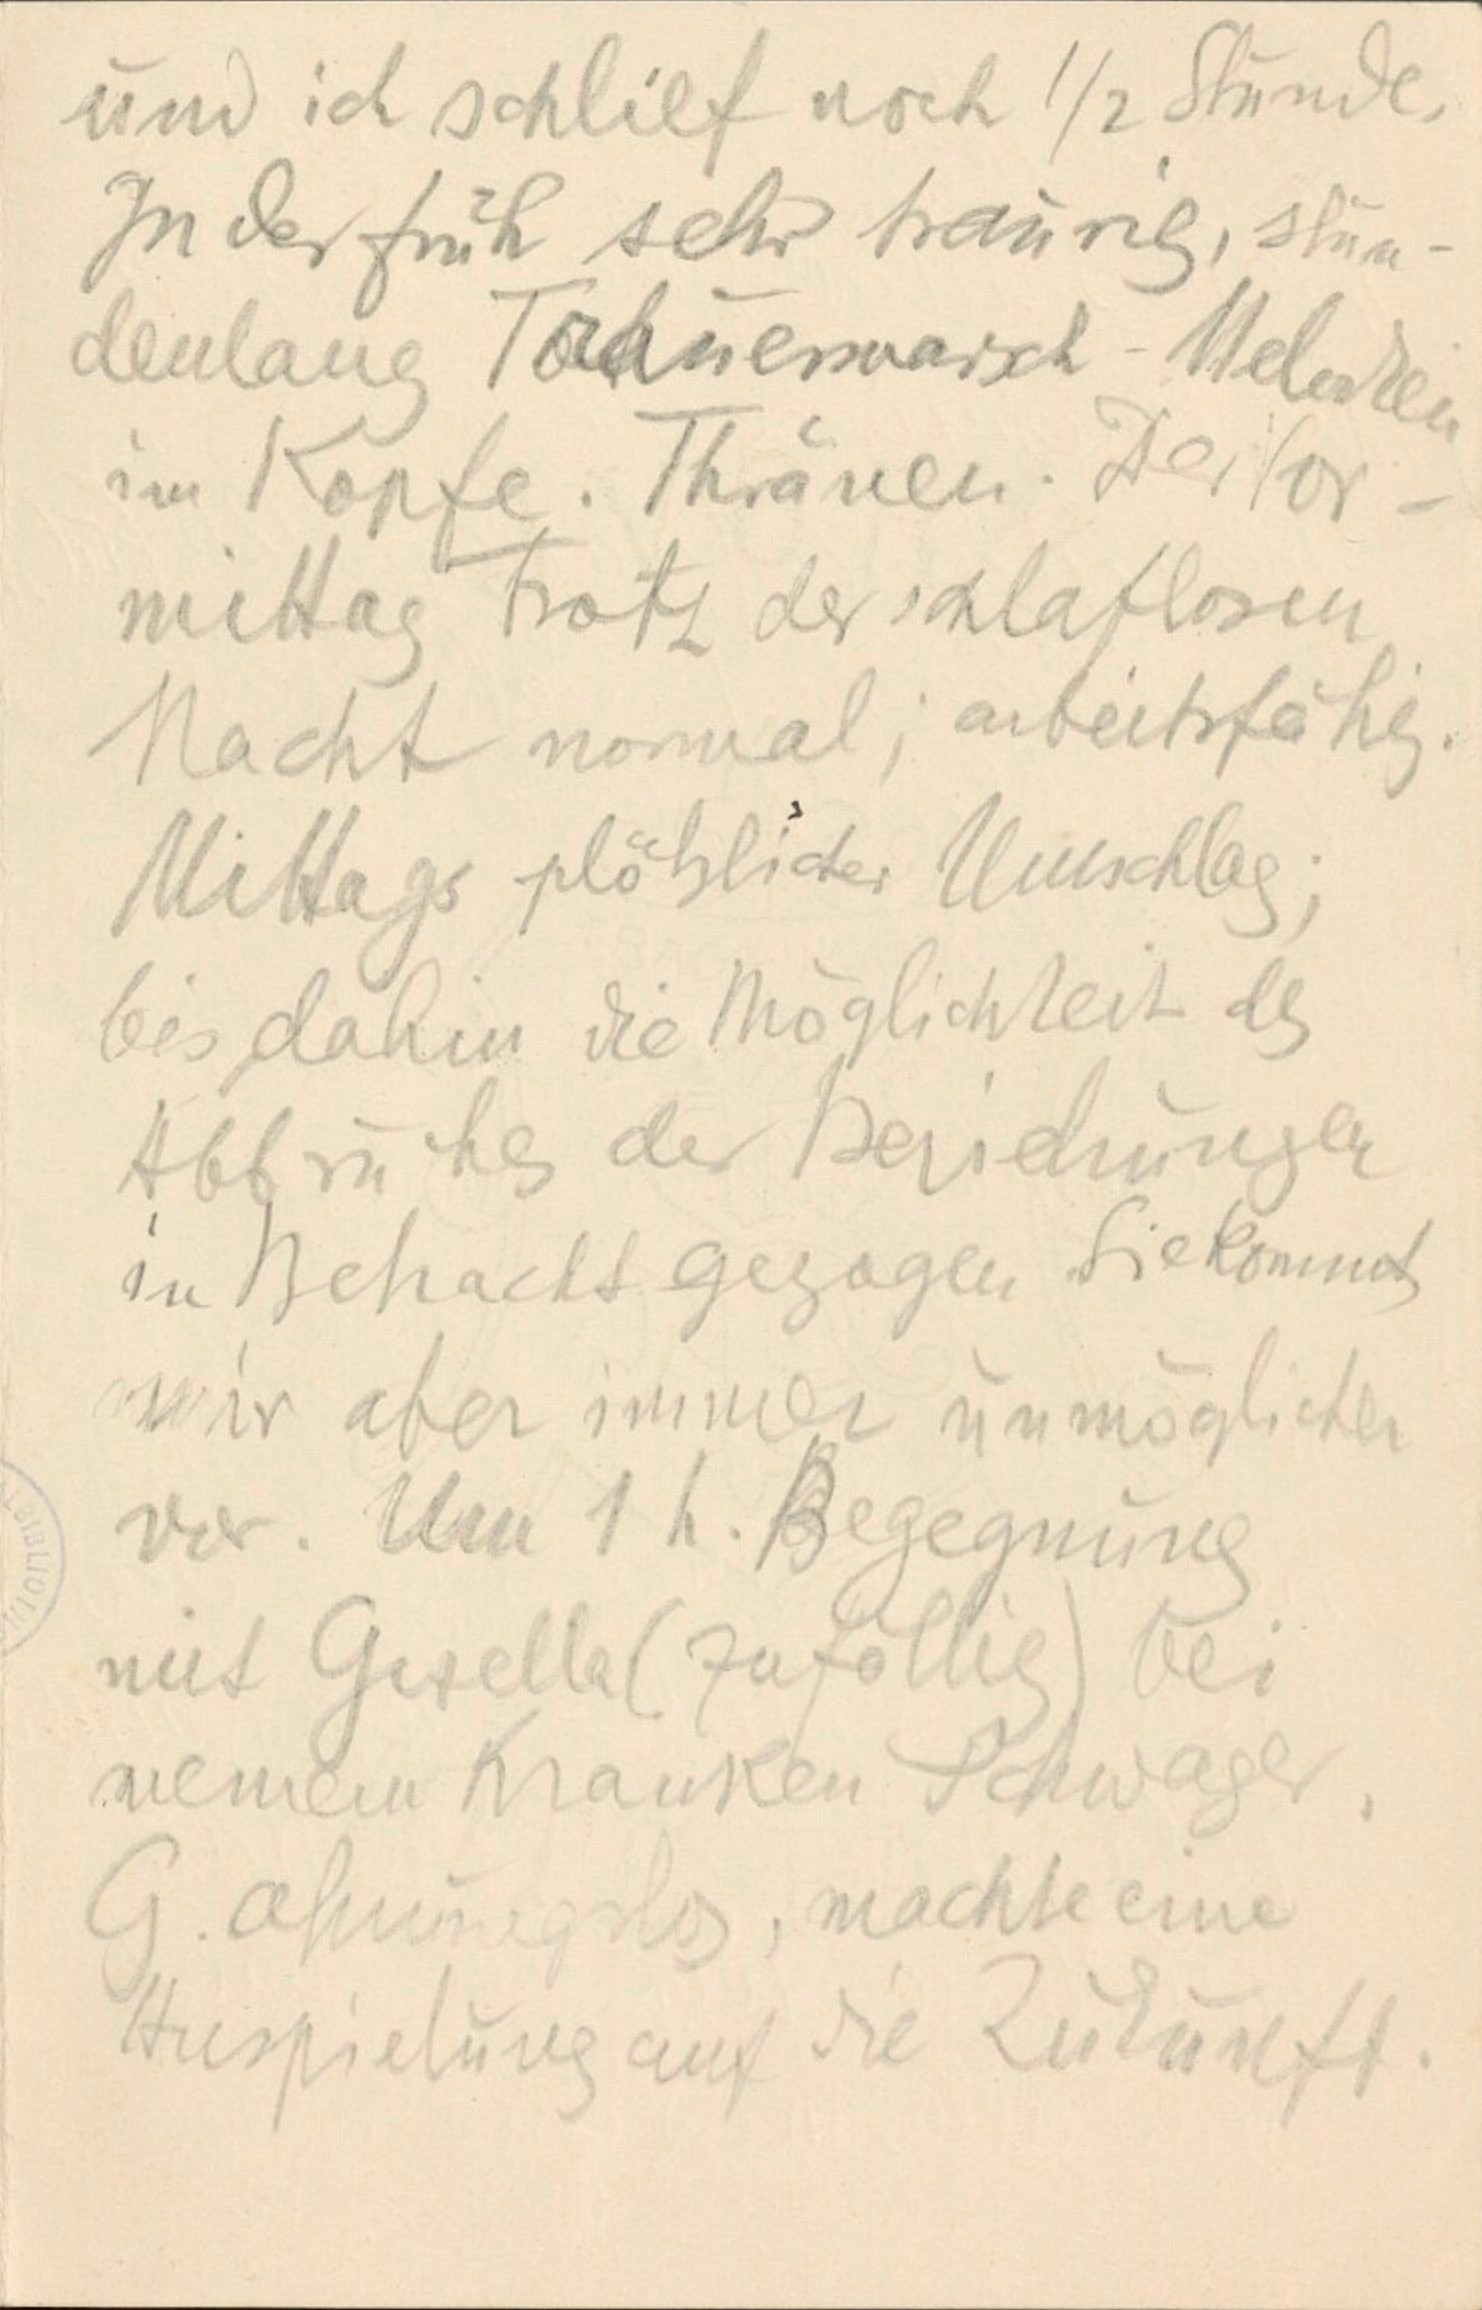 und ich schlief noch 1/2 Stunde.
In der früh sehr traurig, stun-
denlang Trauermarsch-Melodien
im Kopfe. Thränen. Der Vor-
mittag trotz der schlaflosen
Nacht normal; arbeitsfähig.
Mittags plötzlicher Umschlag;
bis dahin die Möglichkeit des
Abbruches der Beziehungen
in Betracht gezogen Sie kommt
mir aber immer unmöglicher
vor. Um 1 h. Begegnung
mit Gisella (zufällig) bei
meinem Kranken Schwager.
G. ahnungslos, machte eine
Anspielung auf die Zukunft.